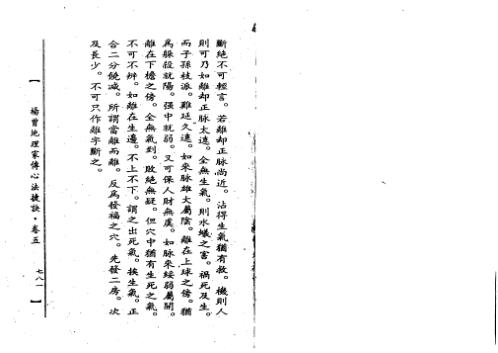 斷絕不可輕言。若離却正脉尚近。沾得生氣猶有救。機則人
則可乃如離却正脉太遠。全無生氣。則水蟻之害。禍死及生。
而子孫枝派。難廷久遠。如來脉雄大屬陰。離在上球之傍。猶
為躲殺就陽。强中就弱。又可保人財無虞。如脉來緩弱屬陽。
離在下檐之傍。全無氣到。敗絕無疑。但穴中猶有生死之氣。
不可不辨。如離在生邊。不上不下。謂之出死氣。挨生氣。正
合二分饒减。所謂當離而離。反為發福之穴。先發二房。次
及長少。不可只作離字斷之。
【 楊曾地理家傳心法捷訣·卷五 七八一 】